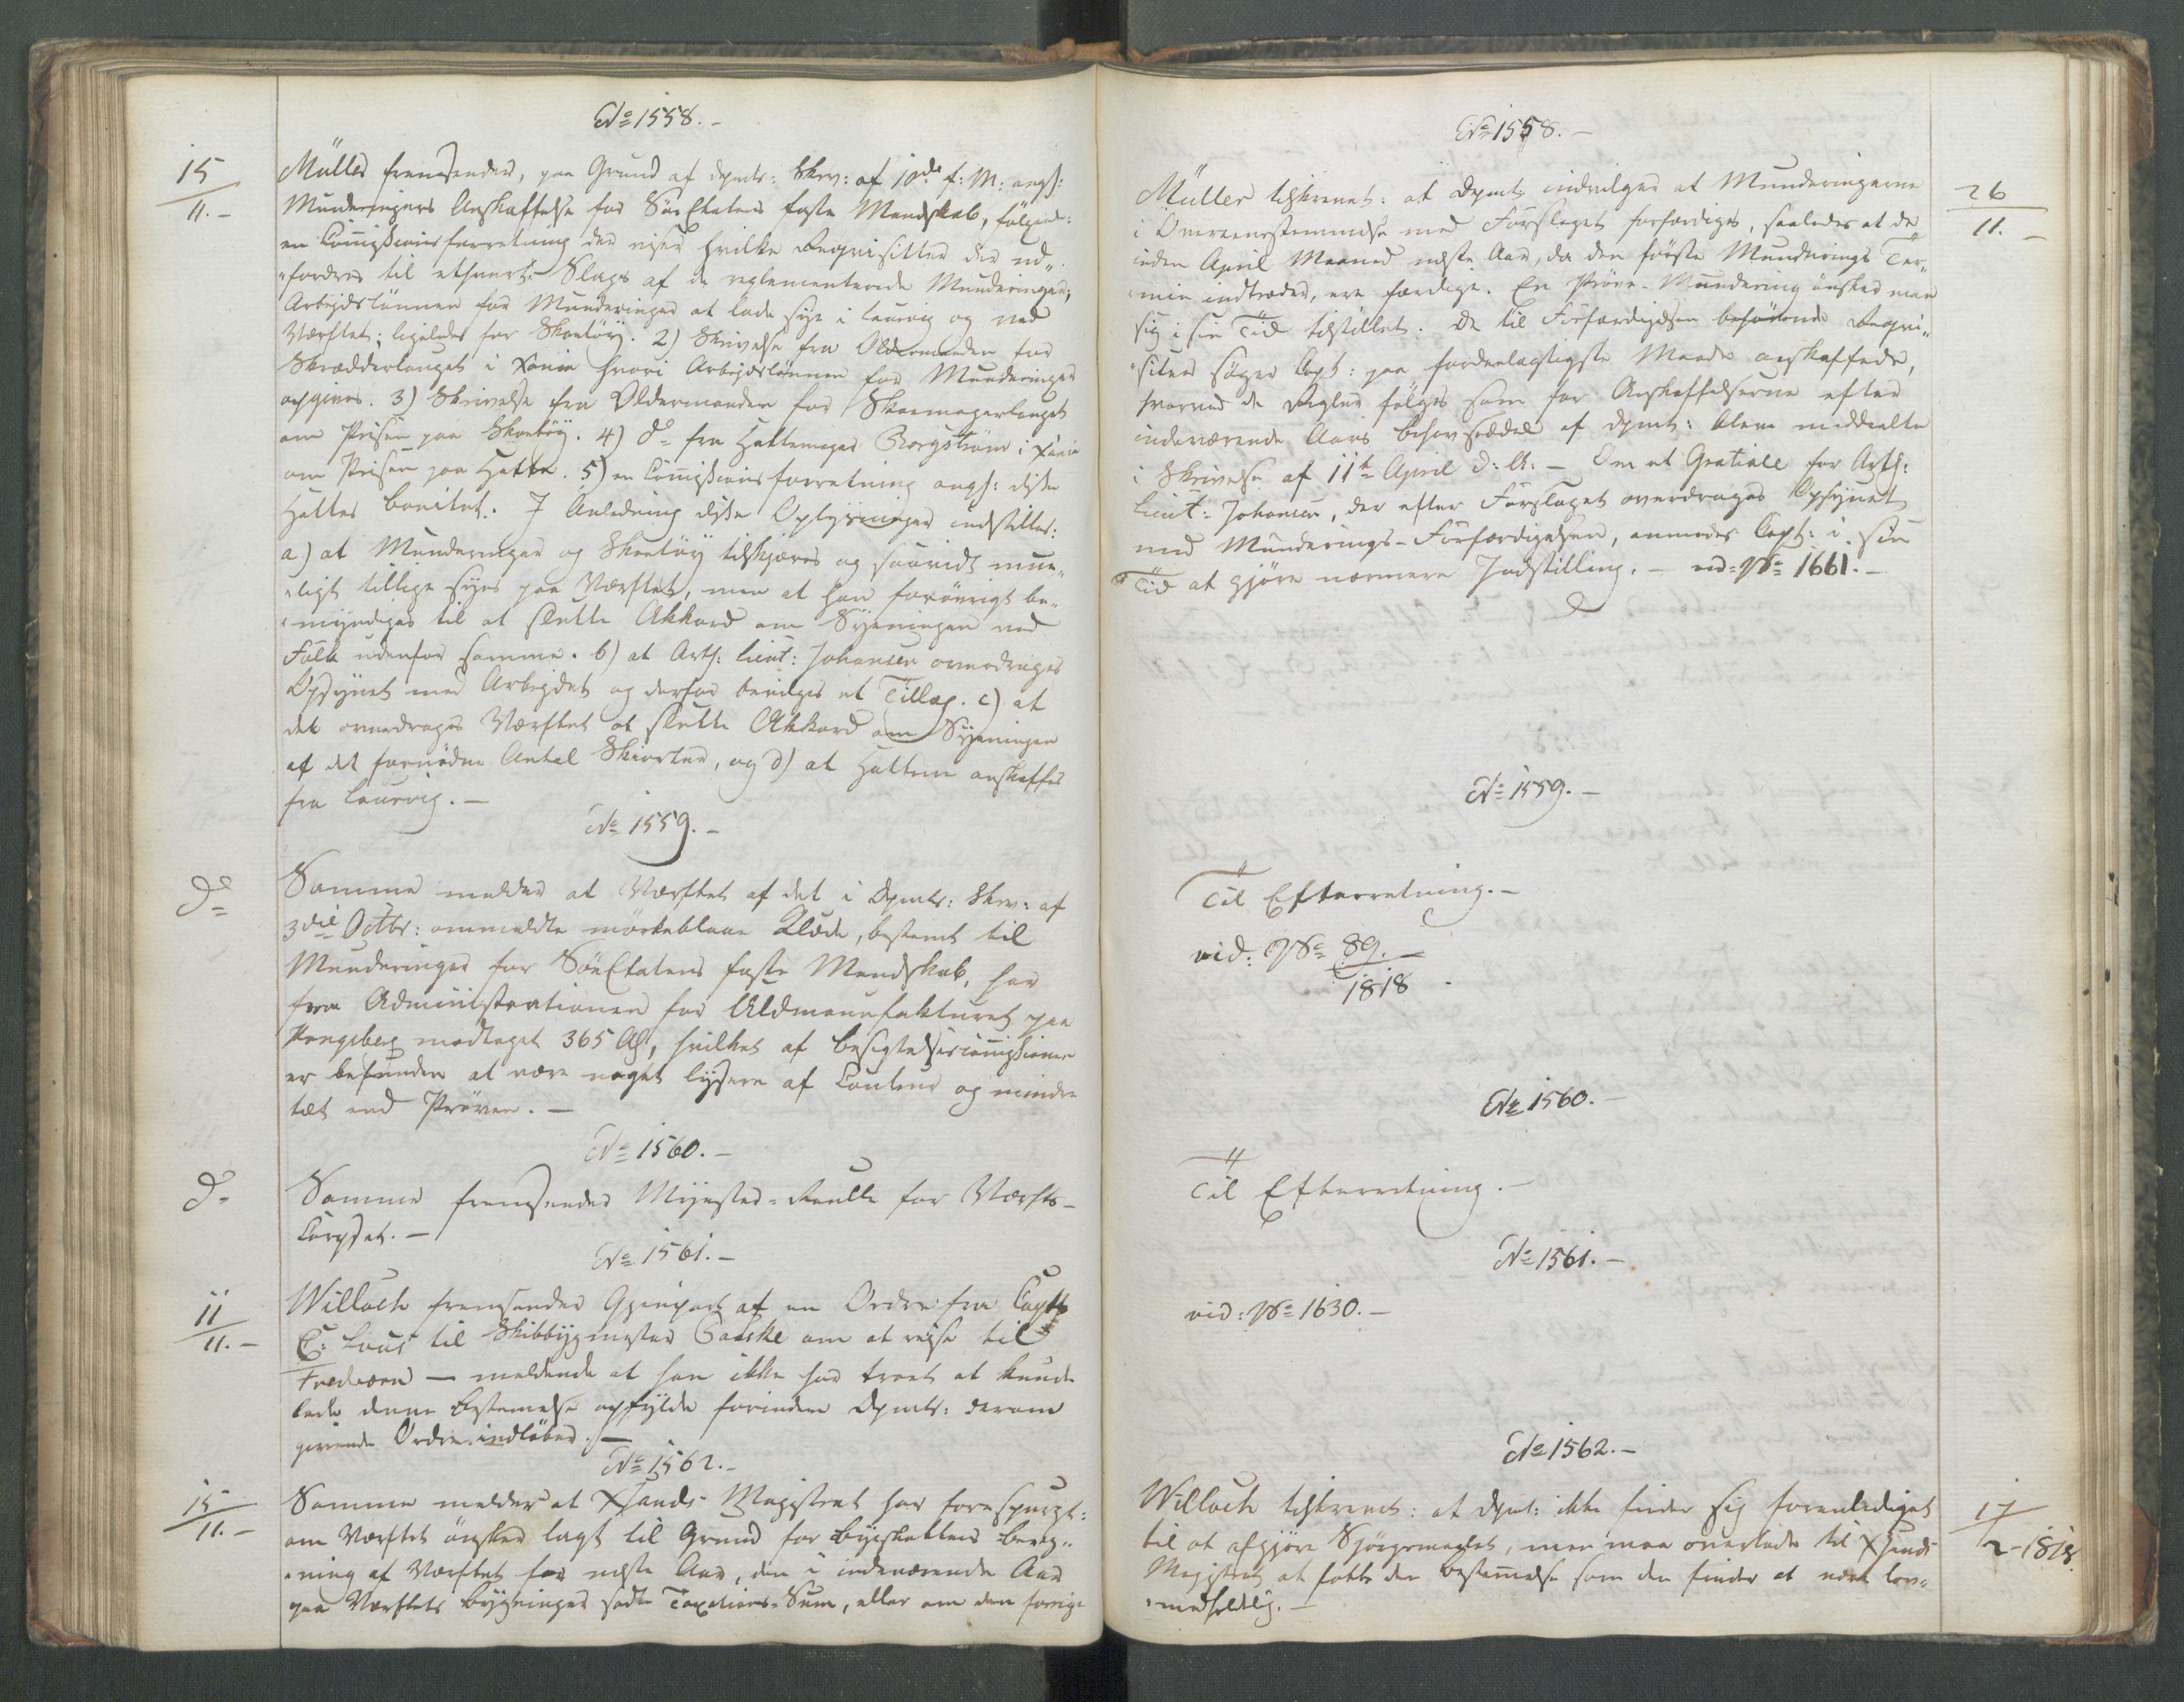 No 1558.-
15
11.-
Müller fremsender, paa Grund af Dpmts: Skr: af 10de f: M: angd:
Munderingers Anskaffelse for SöeEtatens faste Mandskab, fölgende:
en Commissionsforretning der viser hvilke Reqvisitter der ud„
„fordres til ethvert Slags af de reglementerede Munderinger,
Arbejdslönnen for Munderinger at lade sye i Laurvig og ved
Værftet; ligeledes for Skoetöy. 2) Skrivelse fra Oldermanden for
Skrædderlauget i Xania hvori Arbejdslönnen for Munderinger
opgives. 3) Skrivelse fra Oldermanden for Skomagerlauget
om Prisen paa Skoetöy. 4) do fra Hattemager Borgström i Xania
om Prisen paa Hatte. 5) en Commissionsforretning angd: disse
Hattes bonitet. I Anledning disse Oplysninger indstilles:
a) at Munderinger og Skoetöy tilskjæres og saavidt mue„
„ligt tillige syes paa Værftet, men at han forövrigt be„
„myndiges til at slutte Akkord om Syeningen med
Folk udenfor samme. b) at Arth: Lieut: Johansen overdrages
Opsynet med Arbejdet og derfor bevilges et Tillæg. c) at
det overdrages Værftet at slutte Akkord om Syeningen
af det fornödne Antal Skiorter, og d) at Hattene anskaffes
fra Laurvig.-
No 1559.-
do
Samme melder at Værftet af det i Dpmts: Skr: af
3die Octbr: ommeldte mörkeblaae Klæde, bestemt til
Munderinger for SöeEtatens faste Mandskab, har
fra Administrationen for Uldmanufakturet paa
Kongsberg modtaget 365 Al, hvilket af Besigtelsescommissionen
er befunden at være noget lysere af Couleur og mindre
tæt end Pröven.-
No 1560.-
do
Samme fremsender Mynster-Rulle for Værfts-
Corpset.-
No 1561.-
11
11.-
Willoch fremsender Gjenpart af en Ordre fra Capt
C: Lous til Skibbygmester om at rejse til
Fredværn - meldende at han ikke har troet at kunde
lade denne Bestemmelse opfylde forinden Dpmts: derom
givende Ordre indlöber.-
No 1562.-
15
11.-
Samme melder at Xsands Magistrat har forespurgt:
om Værftet önsker lagt til Grund for Byeskattens Bereg„
„ning af Værftet for næste Aar, den i indeværende Aar
paa Værftets bygninger satte Taxations-Sum, eller om den forrige
No 1558.-
26
11.-
Müller tilskrevet: at Dpmt: indvilger at Munderingerne
i Overeensstemmelse med Forslaget forfærdiges, saaledes at de
inden April Maaned næste Aar, da den förste Munderings Ter„
„min indtræder, ere færdige. En Pröve-Mundering önsker man
sig i sin Tid tilstillet. De til Forfærdigelsen behövende Reqvi„
„siter söger Capt: paa fordeelagtigste Maade anskaffede,
hvorved de Regler fölges som for Anskaffelserne efter
indeværende Aars behovseddel af Dpmt: bleve meddeelte
i Skrivelse af 11te April d: A:- Om et Gratiale for Arth:
Lieut: Johansen, der efter Forslaget overdrages Opsynet
med Munderings-Forfærdigelsen, anmodes Capt: i sin
Tid at gjöre nærmere Indstilling.- vid: No 1661.-
No 1559.-
Til Efterretning.-
vid: No 89.-
1818
No 1560.-
Til Efterretning.-
No 1561.-
vid: No 1630.-
No 1562.-
17
2-1818.
Willoch tilskrevet: at Dpmt: ikke finder sig foranlediget
til at afgjöre Spörgsmaalet, men maa overlade til Xsands
Magistrat at fatte den Bestemmelse som den finder at være lov„
„medholdelig.-